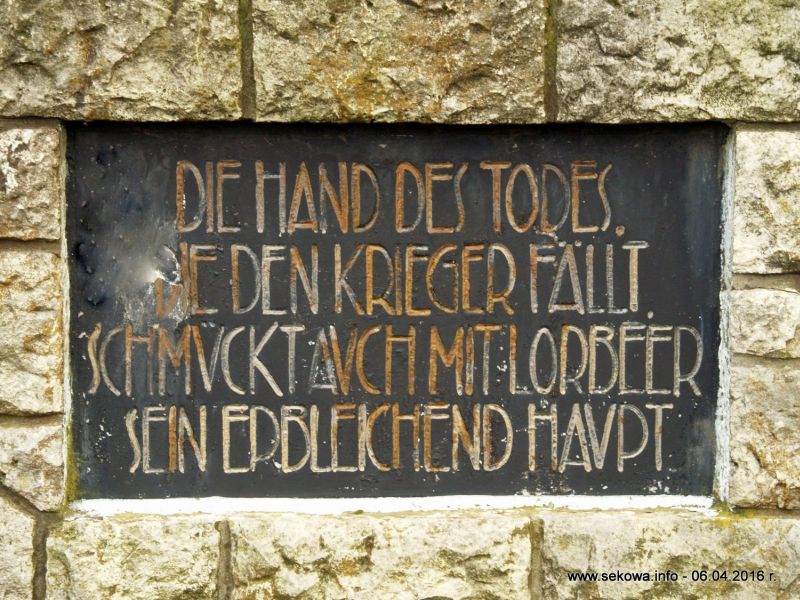 DIE HAND DES TODES,
DIE DEN KRIEGER FÄLLT,
SCHMVCKT AVCH MIT LORBEER
SEIN ERBLEICHEND HAVPT
www.sekowa.info - 06.04.2016 r.